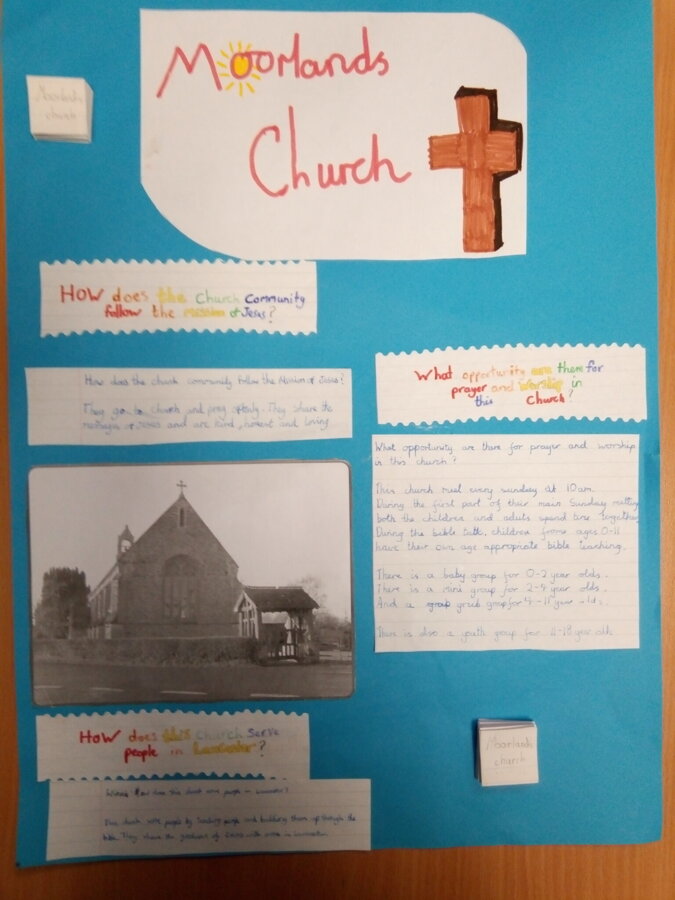 Moorlands
Church
Moorlands
church
How does the Church Community
follow the mission of Jesus?
How does the church community follow the Mission of Jesus?
They go to church and pray openly. They share the
messages of Jesus and are kind, honest and loving
What opportunity are them for
prayer and worship in
this Church?
What opportunity are there for prayer and worship
in this church?
This church meet every sunday at 10am.
During the first part of their main Sunday meeting
both the children and adults spend time together
During the bible talk, children from ages 0-11
have their own age appropriate bible teaching.
There is a baby group for 0-2 year olds.
There is a mini group for 2-4 year olds.
And a group for - 11 year olds.
There is also a youth group for 11-18 year olds
How does this Church Serve
people in Lancaster?
How does this church serve people in Lancaster?
This church people by teaching people and building them up through the
bible. They share the of Jesus with in Lancaster.
Moorlands
church